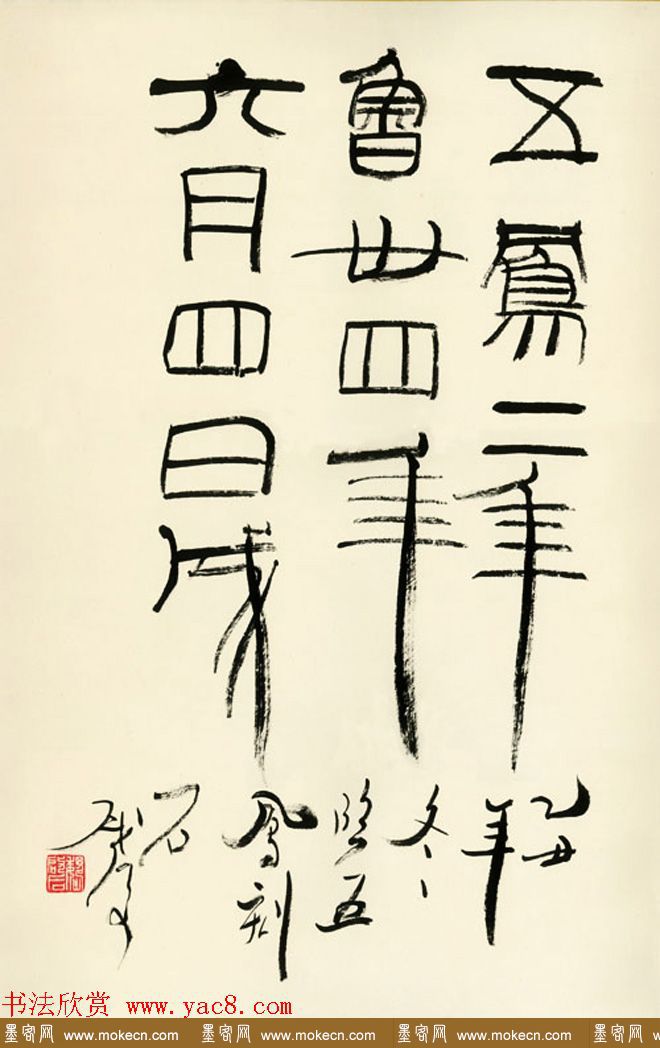 五鳳二年
魯卅四年
六月四日成
乙丑
年
冬
臨五
鳳刻
石
书法欣赏 www.yac8.com
墨客网 www.mokecn.com 墨客网 www.mokecn.com 墨客网 www.mokecn.com 墨客网 www